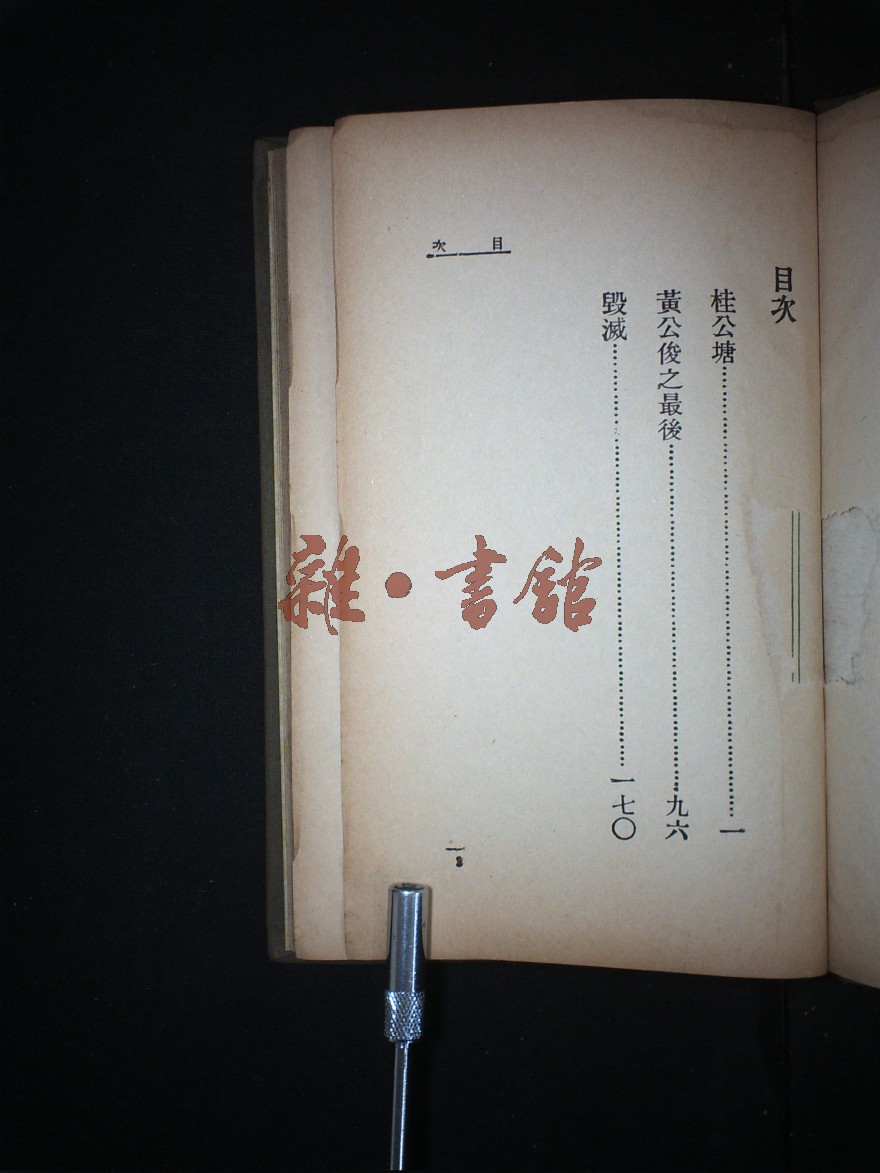 目次
桂公塘……一
黃公俊之最後……九六
毀滅……一七〇
目次
一
雜·書館